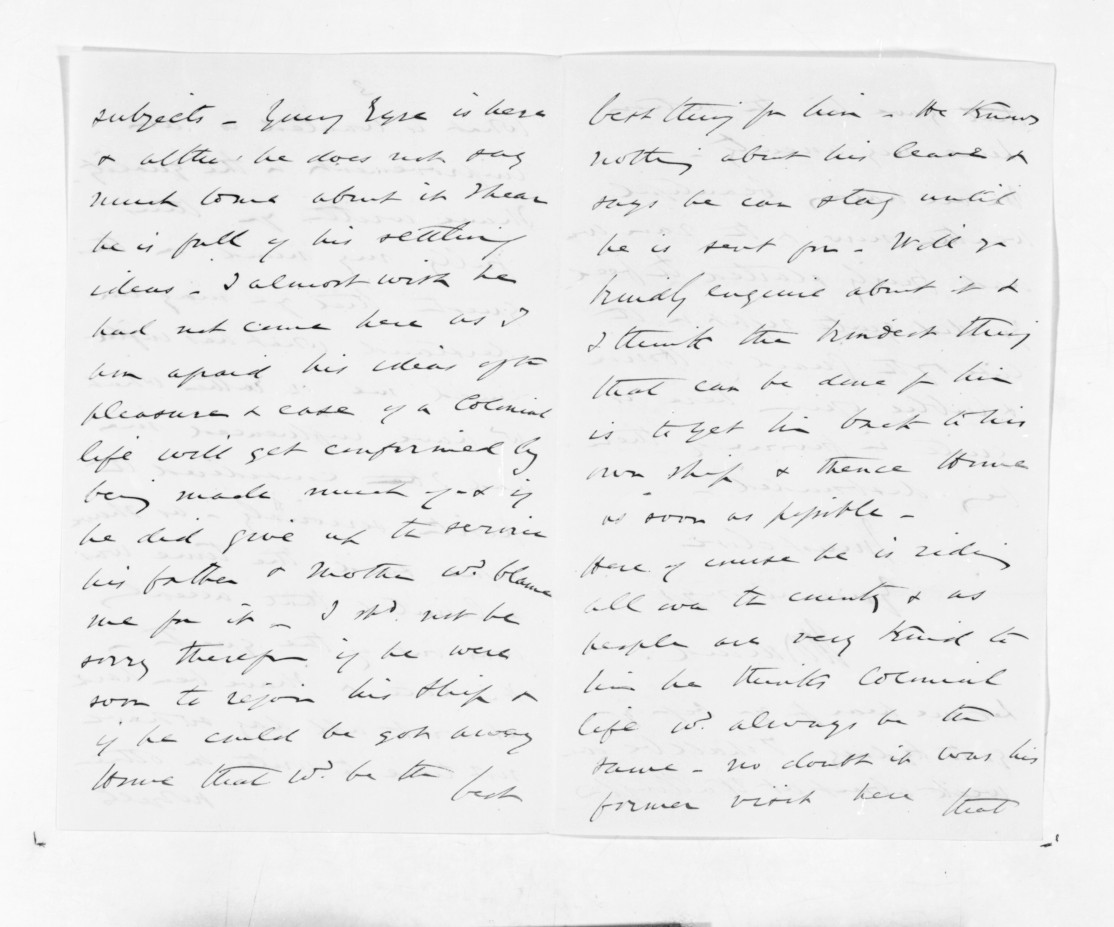 subjects - Young Eyre is here
& altho' he does not say
much to me about it I hear
he is full of his settling
ideas - I almost wish he
had not come here as I
am afraid his ideas of the
pleasure & ease of a Colonial
life will get confirmed by
being made much of - & if
he did give up the service
his father & mother wd. blame
me for it - I shd. not be
sorry therefore if he were
soon to rejoin his ship &
if he could be got away
Home that wd. be the
best
best thing for him - He knows
nothing about his leave &
says he can stay until
he is sent for - Will yo
kindly enquire about it &
I think the kindest thing
that can be done for him
is to get him back to his
own ship & thence Home
as soon as possible -
Here of course he is riding
all over the country & as
people are very kind to
him he thinks Colonial
life wd. always be the
same - no doubt it was his
former visit here that